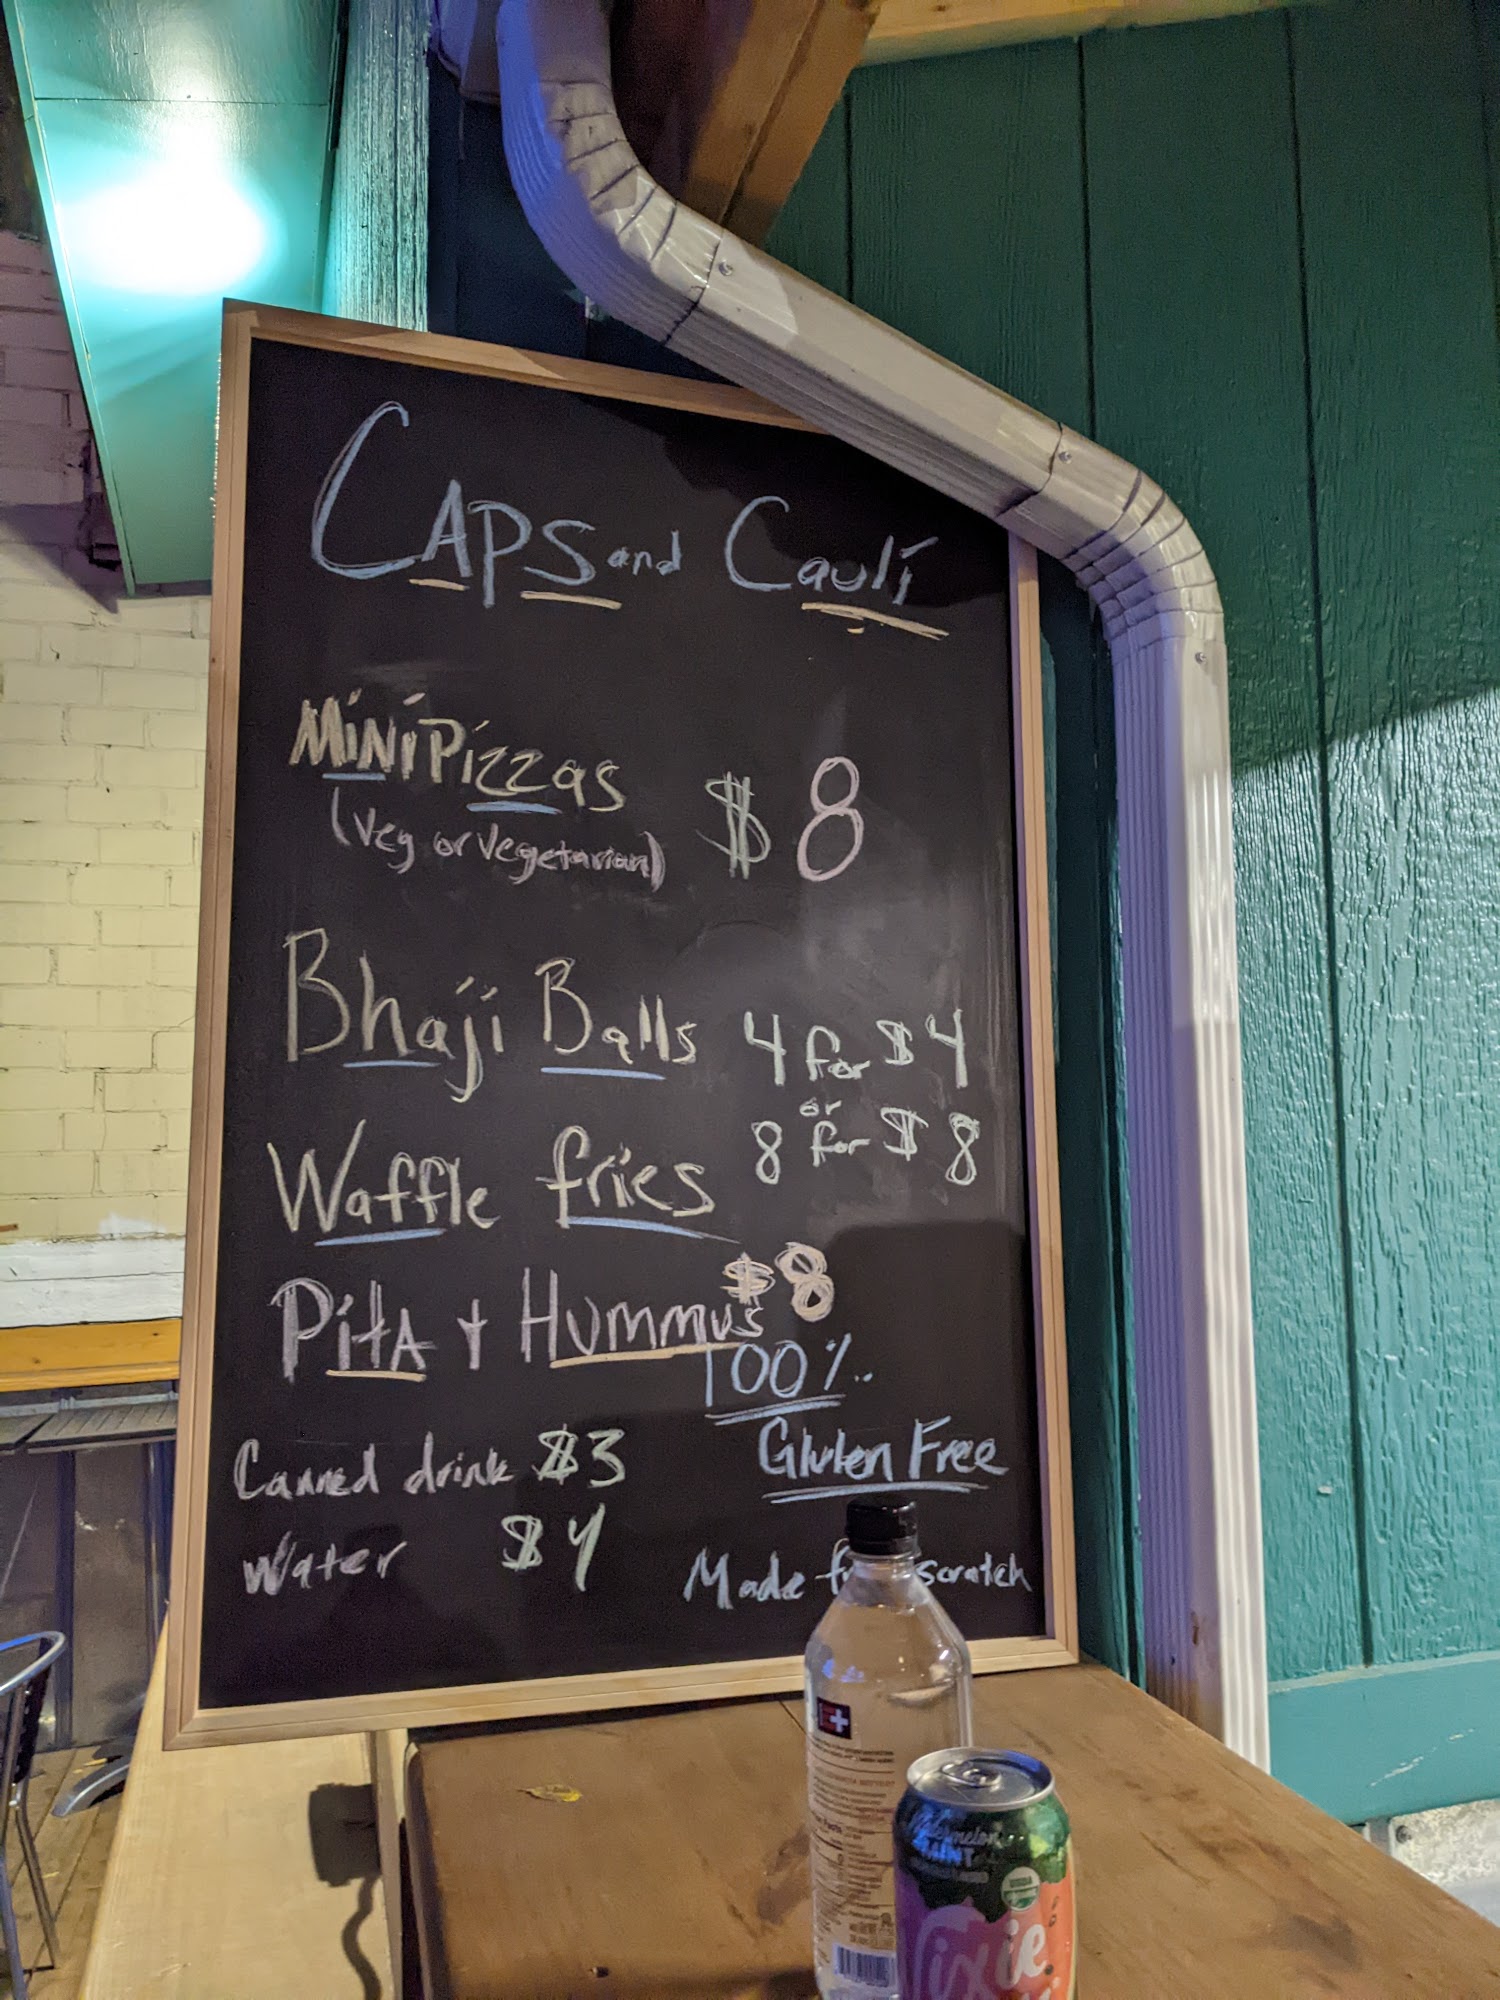 CAPS and Cauli
MiNi Pizzas
(Veg or Vegetarian)
$8
Bhaji Balls
4 for $4
or
8 for $8
Waffle fries
$8
PitA + Hummus
100%
Gluten Free
Canned drink $3
Water $4
Made scratch
Watermelon
MINT
USDA
ixie